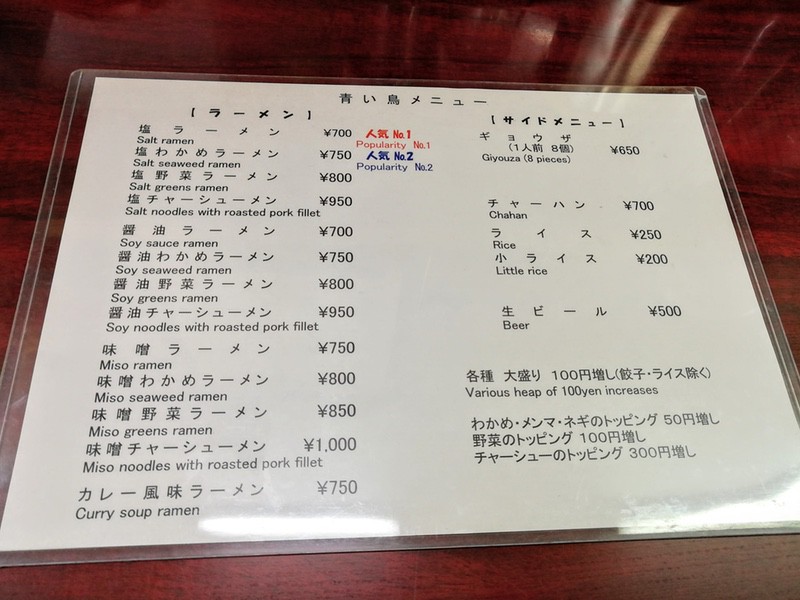 青い鳥メニュー
【ラーメン】
塩ラーメン ¥700 人気 No.1
Salt ramen Popularity No.1
塩わかめラーメン ¥750 人気 No.2
Salt seaweed ramen Popularity No.2
塩野菜ラーメン ¥800
Salt greens ramen
塩チャーシューメン ¥950
Salt noodles with roasted pork fillet
醤油ラーメン ¥700
Soy sauce ramen
醤油わかめラーメン ¥750
Soy seaweed ramen
醤油野菜ラーメン ¥800
Soy greens ramen
醤油チャーシューメン ¥950
Soy noodles with roasted pork fillet
味噌ラーメン ¥750
Miso ramen
味噌わかめラーメン ¥800
Miso seaweed ramen
味噌野菜ラーメン ¥850
Miso greens ramen
味噌チャーシューメン ¥1,000
Miso noodles with roasted pork fillet
カレー風味ラーメン ¥750
Curry soup ramen
【サイドメニュー】
ギョウザ
(1人前 8個) ¥650
Giyouza (8 pieces)
チャーハン ¥700
Chahan
ライス ¥250
Rice
小ライス ¥200
Little rice
生ビール ¥500
Beer
各種 大盛り 100円増し(餃子・ライス除く)
Various heap of 100yen increases
わかめ・メンマ・ネギのトッピング 50円増し
野菜のトッピング 100円増し
チャーシューのトッピング 300円増し